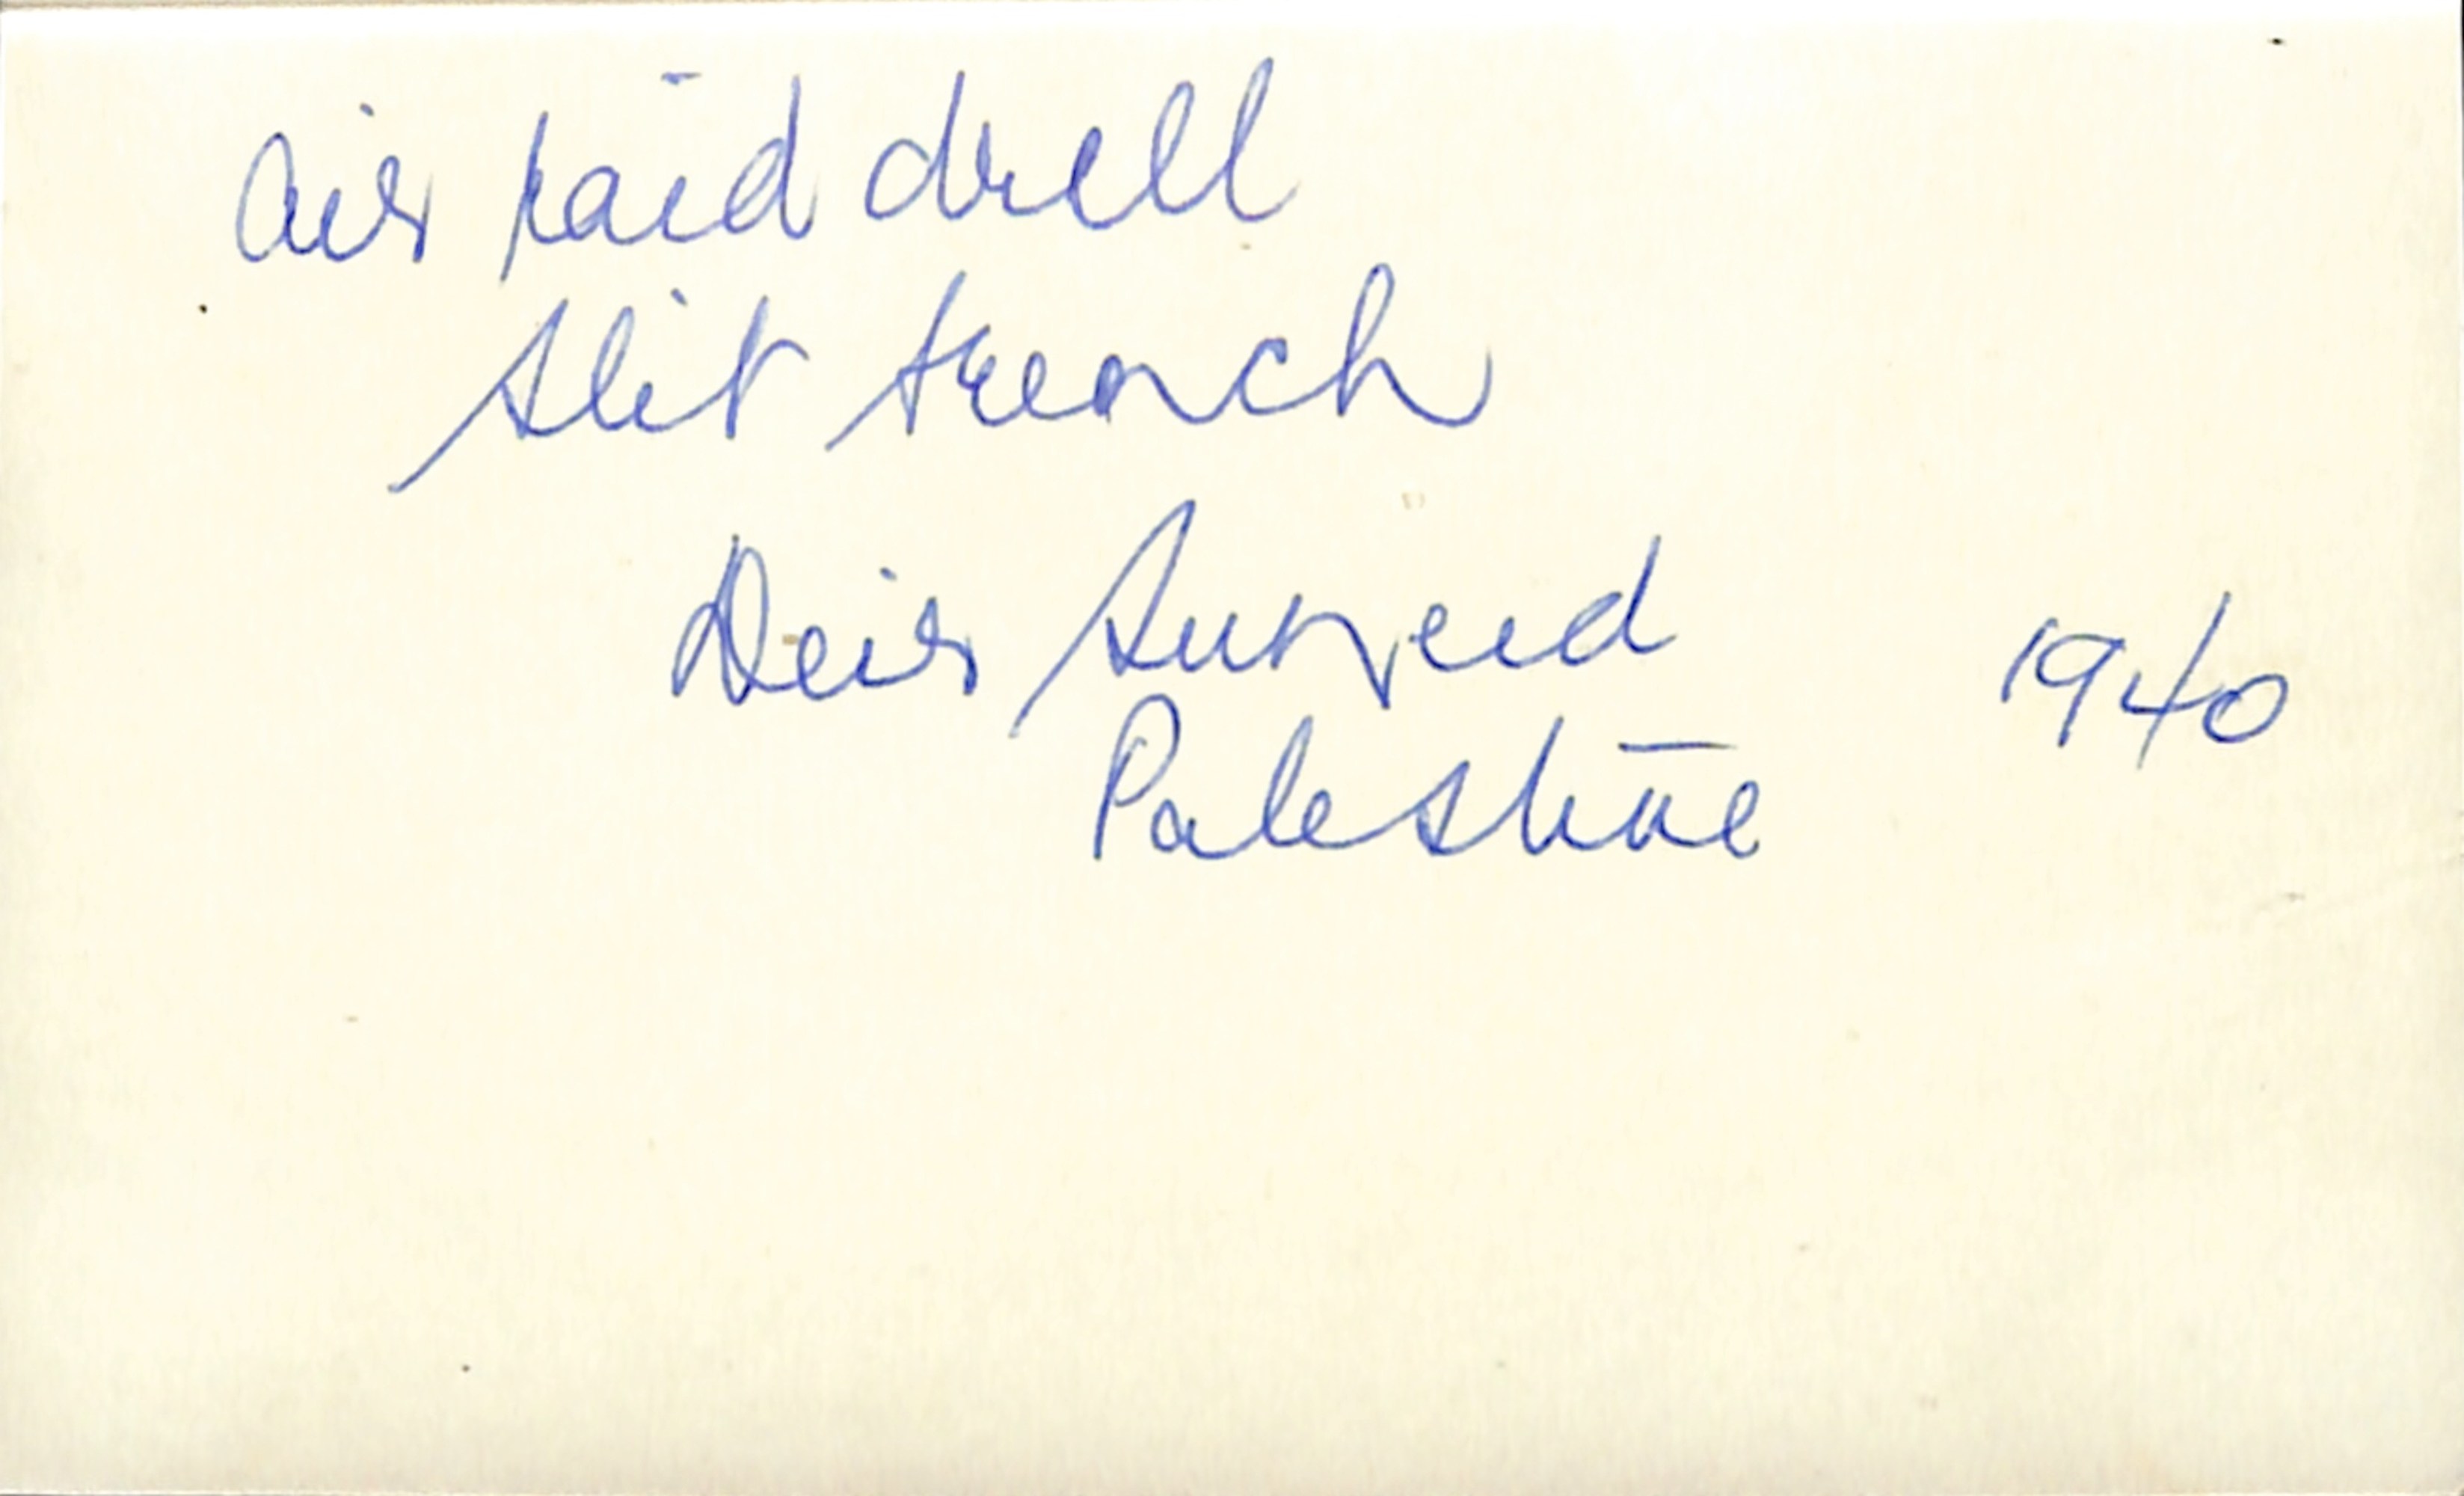 Air raid drill
slit trench
Deir Suneid
Palestine
1940